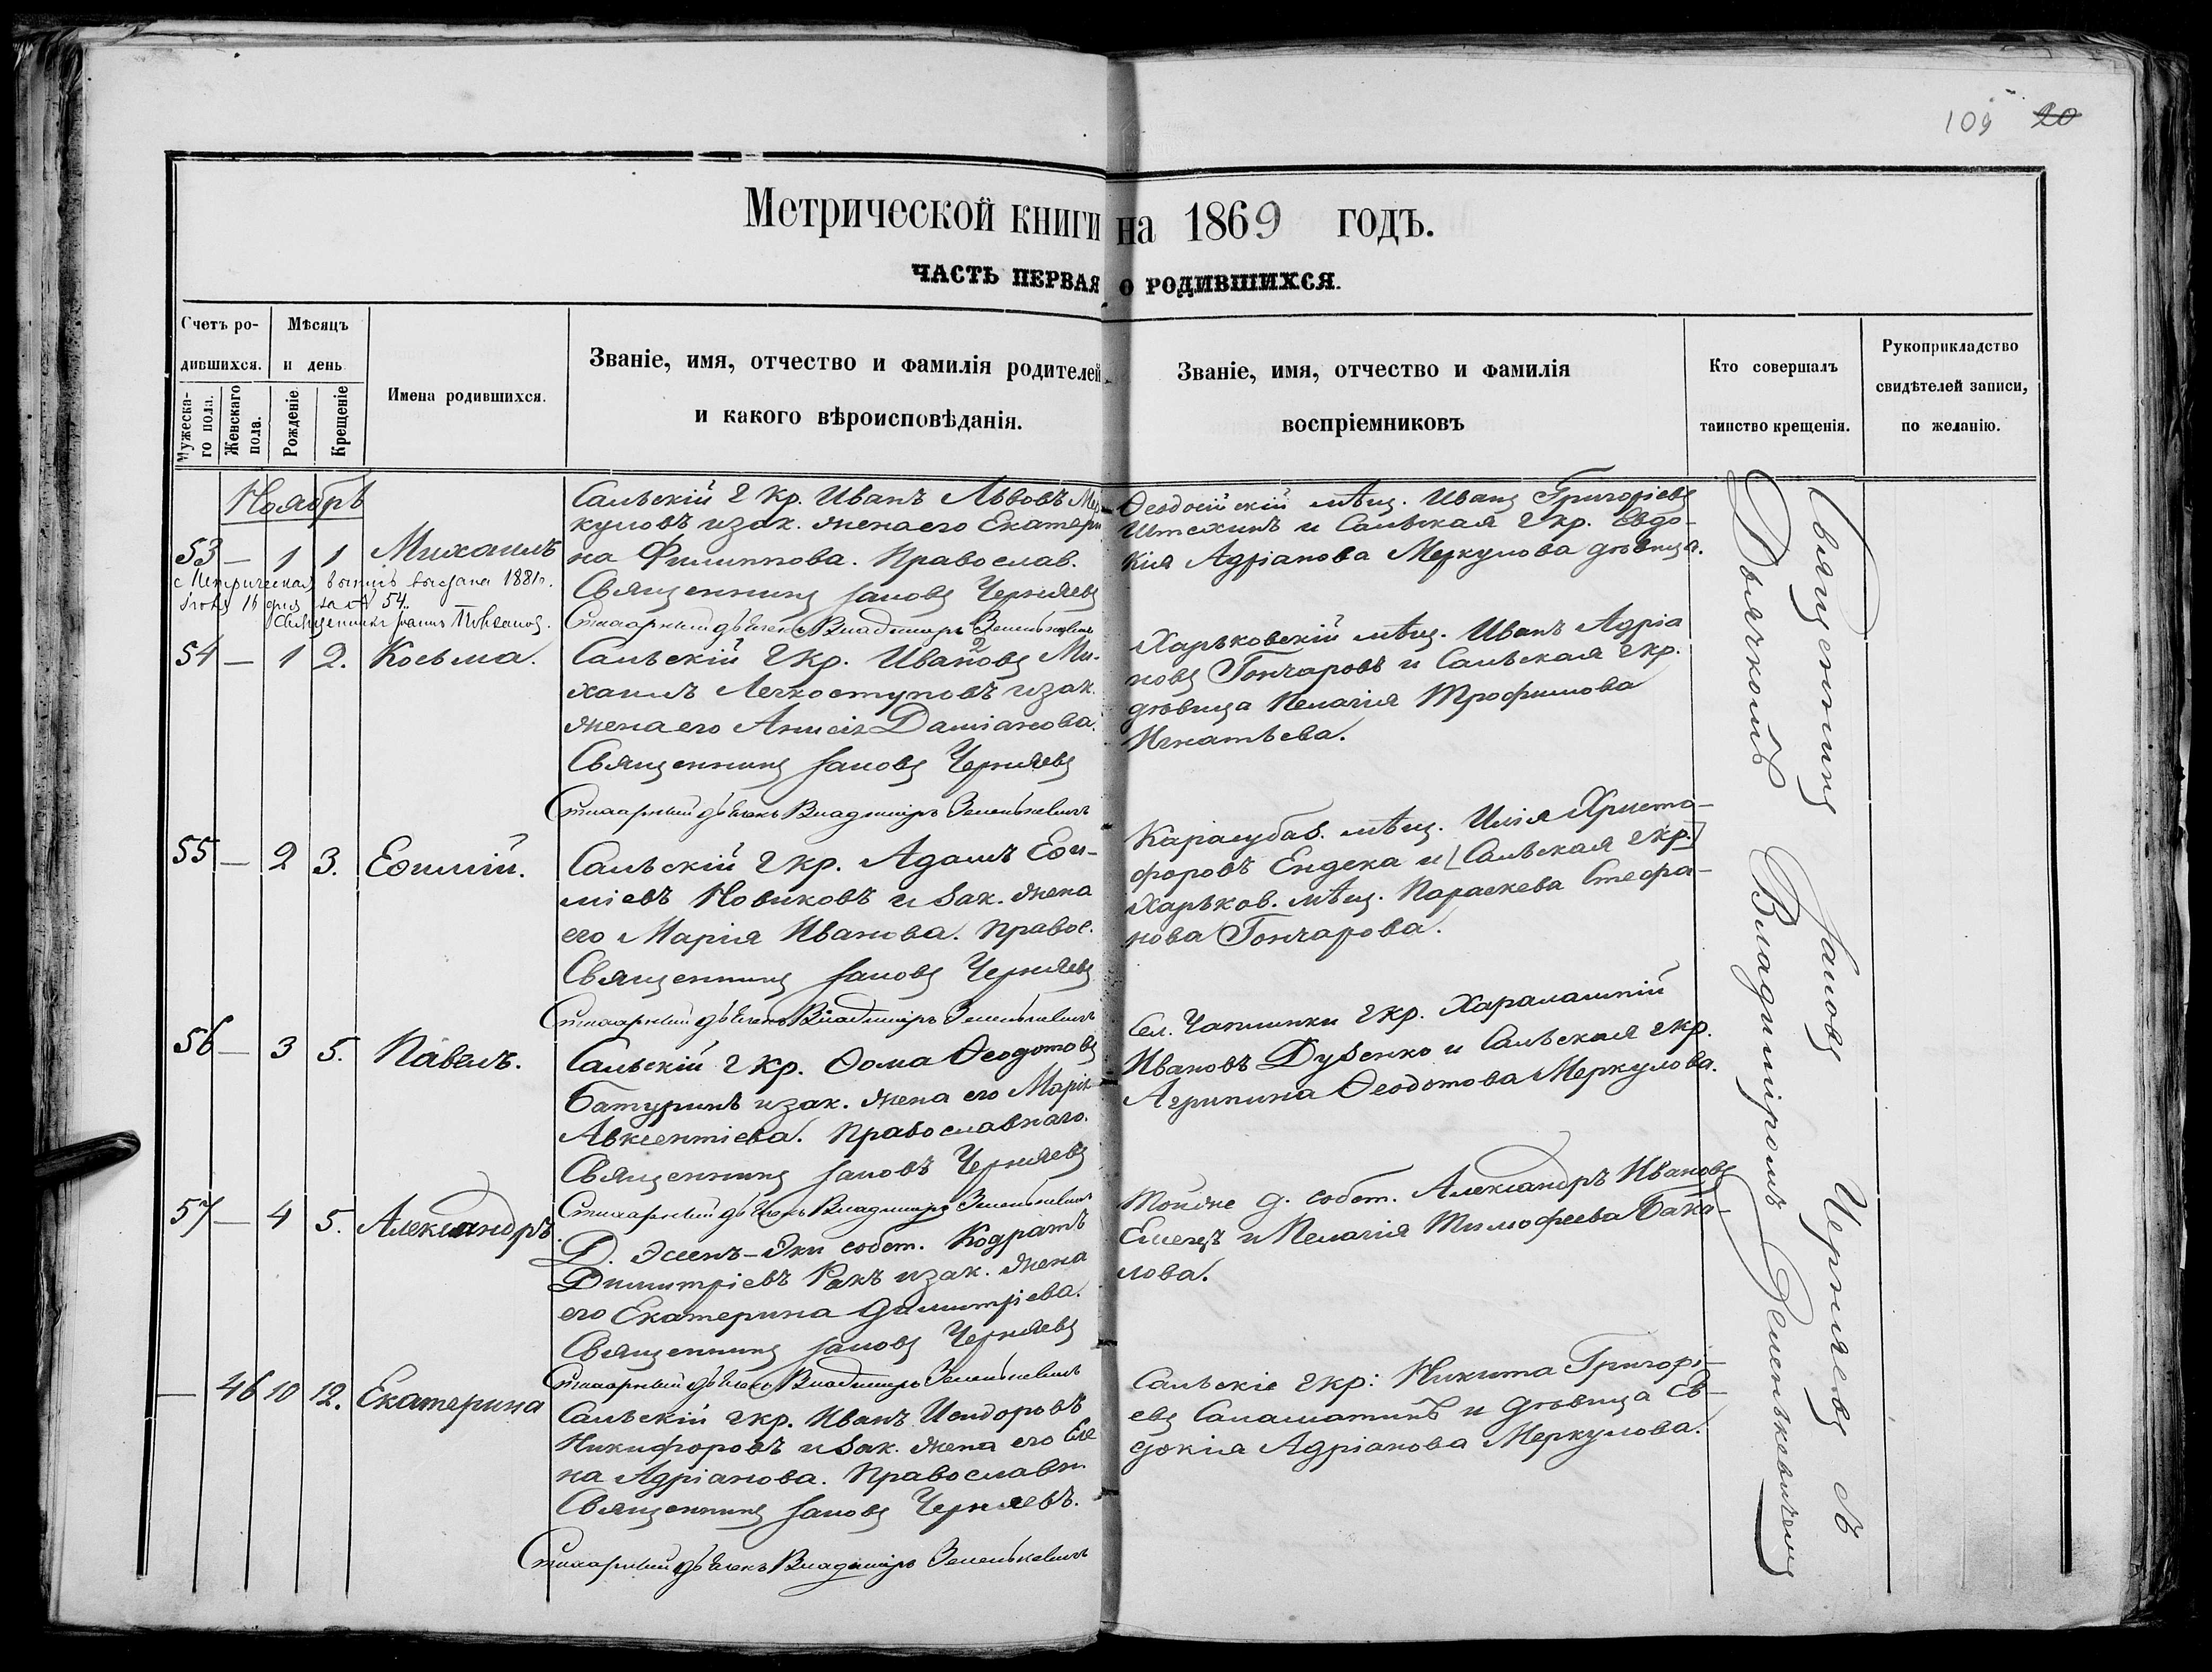 109 20
Метрической книги на 1869 годъ.
ЧАСТЬ ПЕРВАЯ О РОДИВШИХСЯ.
Счетъ ро-
дившихся.
Мужеска-
го пола.
Женскаго
пола.
Мѣсяцъ
и день
Рожденіе
Крещеніе
Имена родившихся.
Званіе, имя, отчество и фамилія родителей
и какого вѣроисповѣданія.
Званіе, имя, отчество и фамилія
воспріемниковъ
Кто совершалъ
таинство крещенія.
Рукоприкладство
свидѣтелей записи,
по желанію.
Ноябрь
53 — 1 1 Михаилъ
Сальскій 2 кр. Иванъ Львовъ Мер
куловъ и зак. жена его Екатери
на Филиппова. Православ.
Священникъ Іаковъ Черняевъ
Стихарный дьячекъ Владимиръ Зеленькевичъ
Ѳеодосійскій мѣщ. Иванъ Григорьевъ
Штехинъ и Сальская 2 кр. Евдо-
кія Адріанова Меркулова дѣвица.
Метрическая выпись выдана 1881 г.
16 дня за № 54.
Священникъ Іоаннъ
54 — 1 2. Косьма.
Сальскій 2 кр. Ивановъ Ми-
хаилъ Легкоступовъ и зак.
жена его Анисія Даміанова.
Священникъ Іаковъ Черняевъ
Стихарный дьячекъ Владимиръ Зеленькевичъ
Харьковскій мѣщ. Иванъ Адріа
новъ Гончаровъ и Сальская 2 кр.
дѣвица Пелагія Трофимова
Игнатьева.
55 — 2 3. Евѳимій.
Сальскій 2 кр. Адамъ Евѳи-
міевъ Новиковъ и зак. жена
его Марія Иванова. Правос.
Священникъ Іаковъ Черняевъ
Стихарный дьячекъ Владимиръ Зеленькевичъ
Карасубаз. мѣщ. Илія Христо-
форовъ Ендека и [Сальская 2 кр.]
Харьков. мѣщ. Параскева Стефа-
нова Гончарова.
56 — 3 5. Павелъ.
Сальскій 2 кр. Ѳома Ѳеодотовъ
Батуринъ и зак. жена его Марія
Авксентіева. Православнаго.
Священникъ Іаковъ Черняевъ
Стихарный дьячекъ Владимиръ Зеленькевичъ
Сел. Чаплинки 2 кр. Харалампій
Ивановъ Дубенко и Сальская 2 кр.
Агрипина Ѳеодотова Меркулова.
57 — 4 5. Александръ.
Д. Эсенъ-Эки собст. Кодратъ
Димитріевъ Ракъ и зак. жена
его Екатерина Димитріева.
Священникъ Іаковъ Черняевъ
Стихарный дьячекъ Владимиръ Зеленькевичъ
Тойже д. собст. Александръ Ивановъ
и Пелагія Тимофеева Бака-
лова.
— 46 10 12. Екатерина
Сальскій 2 кр. Иванъ Исидоровъ
Никифоровъ и зак. жена его Еле
на Адріанова. Православн.
Священникъ Іаковъ Черняевъ.
Стихарный дьячекъ Владимиръ Зеленькевичъ
Сальскіе 2 кр: Никита Григорі-
евъ Саламатинъ и дѣвица Ев-
докія Адріанова Меркулова.
Священникъ Іаковъ Черняевъ съ
Дьячкомъ Владимиромъ Зеленькевичемъ